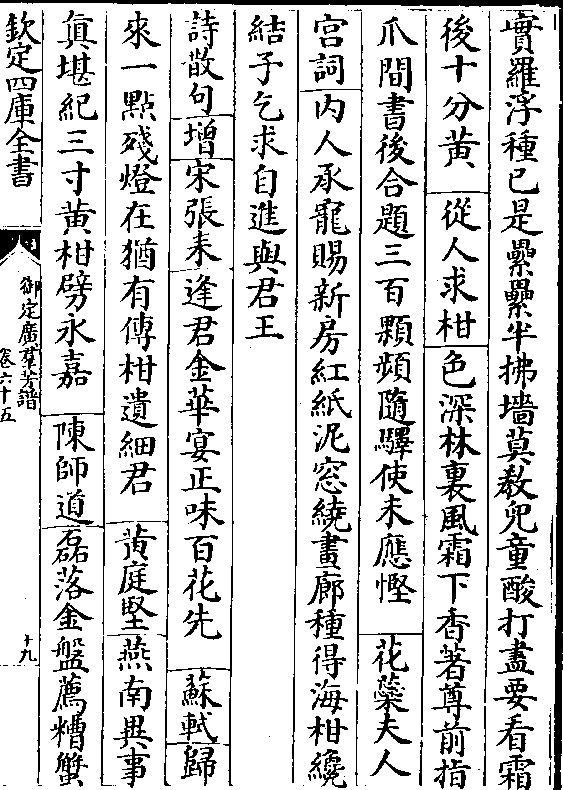 實羅浮種已是纍纍半拂墻莫教兒童酸打盡要看霜
後十分黃　從人求柑　色深林裏風霜下香著尊前指
爪間書後合題三百顆頻隨驛使未應慳　花蘂夫人
宫詞　内人承寵賜新房紅紙泥窓繞畫廊種得海柑纔
結子乞求自進與君王
詩散句　增　宋張耒　逢君金華宴正味百花先　蘇軾　歸
來一點殘燈在猶有傳柑遺細君　黃庭堅　燕南異事
眞堪紀三寸黃柑劈永嘉　陳師道　磊落金盤薦糟蟹
欽定四庫全書
御定廣羣芳譜
卷六十五
十九